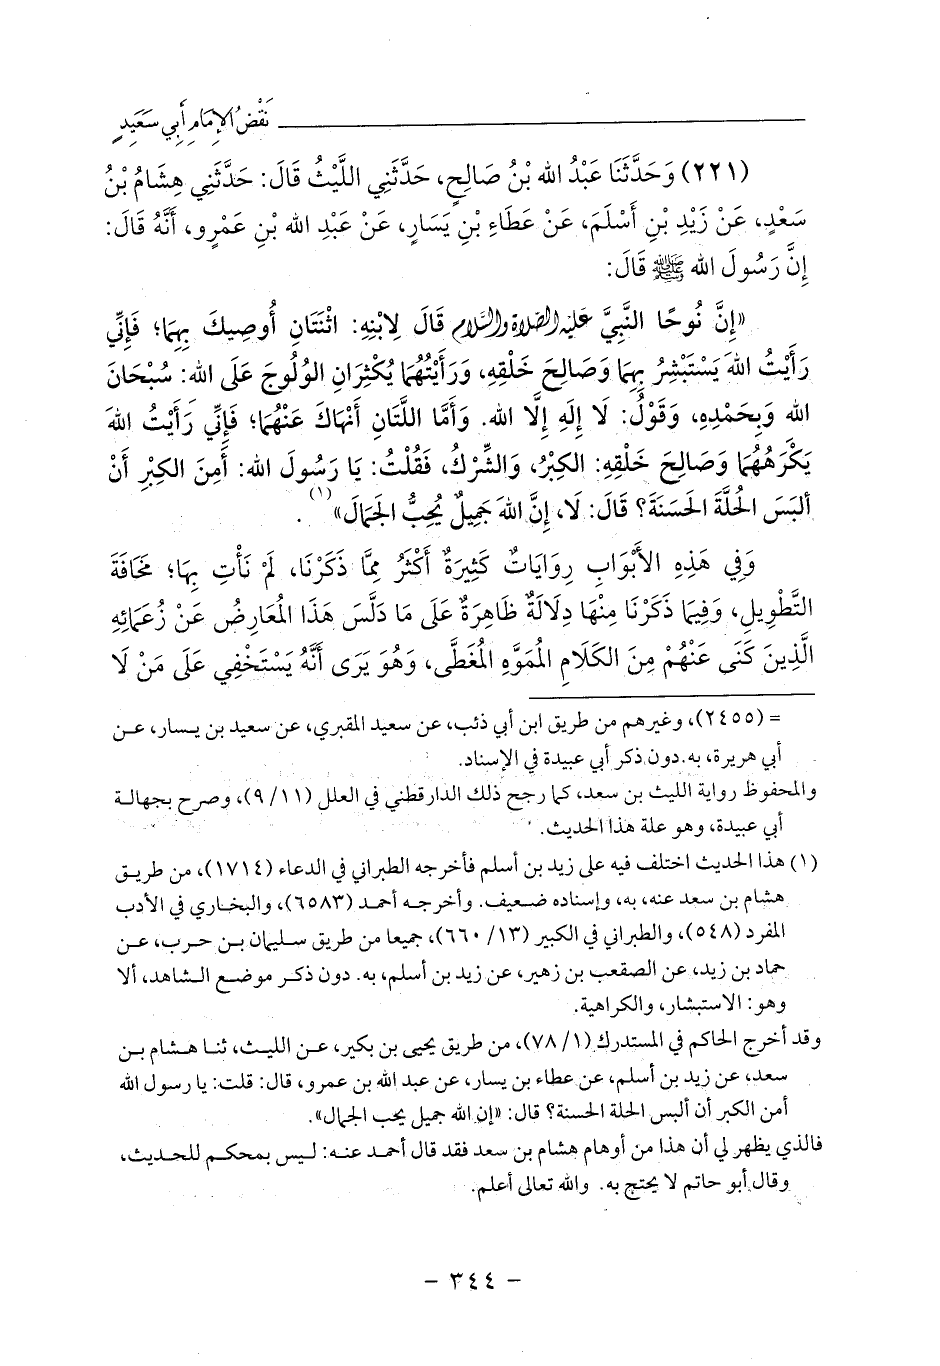 نَقْضُ الإِمَامِ أَبِي سَعِيدٍ
(٢٢١) وَحَدَّثَنَا عَبْدُ الله بْنُ صَالِحٍ، حَدَّثَنِي اللَّيْثُ قَالَ: حَدَّثَنِي هِشَامُ بْنُ
سَعْدٍ، عَنْ زَيْدِ بْنِ أَسْلَمَ، عَنْ عَطَاءِ بْنِ يَسَارٍ، عَنْ عَبْدِ الله بْنِ عَمْرٍو، أَنَّهُ قَالَ:
إِنَّ رَسُولَ الله ﷺ قَالَ:
«إِنَّ نُوحًا النَّبِيَّ عليه الصلاة والسلام قَالَ لِابْنِهِ: اثْنَتَانِ أُوصِيكَ بِهِمَا؛ فَإِنِّي
رَأَيْتُ اللهَ يَسْتَبْشِرُ بِهِمَا وَصَالِحَ خَلْقِهِ، وَرَأَيْتُهُمَا يُكْثِرَانِ الوُلُوجَ عَلَى الله: سُبْحَانَ
الله وَبِحَمْدِهِ، وَقَوْلُ: لَا إِلَهِ إِلَّا الله. وَأَمَّا اللَّتَانِ أَنْهَاكَ عَنْهُمَا؛ فَإِنِّي رَأَيْتُ اللهَ
يَكْرَهُهُمَا وَصَالِحَ خَلْقِهِ: الكِبْرُ، وَالشِّرْكُ، فَقُلْتُ: يَا رَسُولَ الله: أَمِنَ الكِبْرِ أَنْ
أَلبَسَ الحُلَّةَ الحَسَنَةَ؟ قَالَ: لَا، إِنَّ اللهَ جَمِيلٌ يُحِبُّ الجَمَالَ»(١).
وَفِي هَذِهِ الأَبْوَابِ رِوَايَاتٌ كَثِيرَةٌ أَكْثَرُ مِمَّا ذَكَرْنَا، لَمْ نَأْتِ بِهَا؛ مَخَافَةَ
التَّطْوِيلِ، وَفِيمَا ذَكَرْنَا مِنْهَا دِلَالَةٌ ظَاهِرَةٌ عَلَى مَا دَلَّسَ هَذَا المُعَارِضُ عَنْ زُعَمَائِهِ
الَّذِينَ كَنَى عَنْهُمْ مِنَ الكَلَامِ المُمَوَّهِ المُغَطَّى، وَهُوَ يَرَى أَنَّهُ يَسْتَخْفِي عَلَى مَنْ لَا
= (٢٤٥٥)، وغيرهم من طريق ابن أبي ذئب، عن سعيد المقبري، عن سعيد بن يسار، عن
أبي هريرة، به. دون ذكر أبي عبيدة في الإسناد.
والمحفوظ رواية الليث بن سعد، كما رجح ذلك الدارقطني في العلل (١١/ ٩)، وصرح بجهالة
أبي عبيدة، وهو علة هذا الحديث.
(١) هذا الحديث اختلف فيه على زيد بن أسلم فأخرجه الطبراني في الدعاء (١٧١٤)، من طريق
هشام بن سعد عنه، به، وإسناده ضعيف. وأخرجه أحمد (٦٥٨٣)، والبخاري في الأدب
المفرد (٥٤٨)، والطبراني في الكبير (١٣/ ٦٦٠)، جميعا من طريق سليمان بن حرب، عن
حماد بن زيد، عن الصقعب بن زهير، عن زيد بن أسلم، به. دون ذكر موضع الشاهد، ألا
وهو: الاستبشار، والكراهية.
وقد أخرج الحاكم في المستدرك (١/ ٧٨)، من طريق يحيى بن بكير، عن الليث، ثنا هشام بن
سعد، عن زيد بن أسلم، عن عطاء بن يسار، عن عبد الله بن عمرو، قال: قلت: يا رسول الله
أمن الكبر أن ألبس الحلة الحسنة؟ قال: «إن الله جميل يحب الجمال».
فالذي يظهر لي أن هذا من أوهام هشام بن سعد فقد قال أحمد عنه: ليس بمحكم للحديث،
وقال أبو حاتم لا يحتج به. والله تعالى أعلم.
- ٣٤٤ -